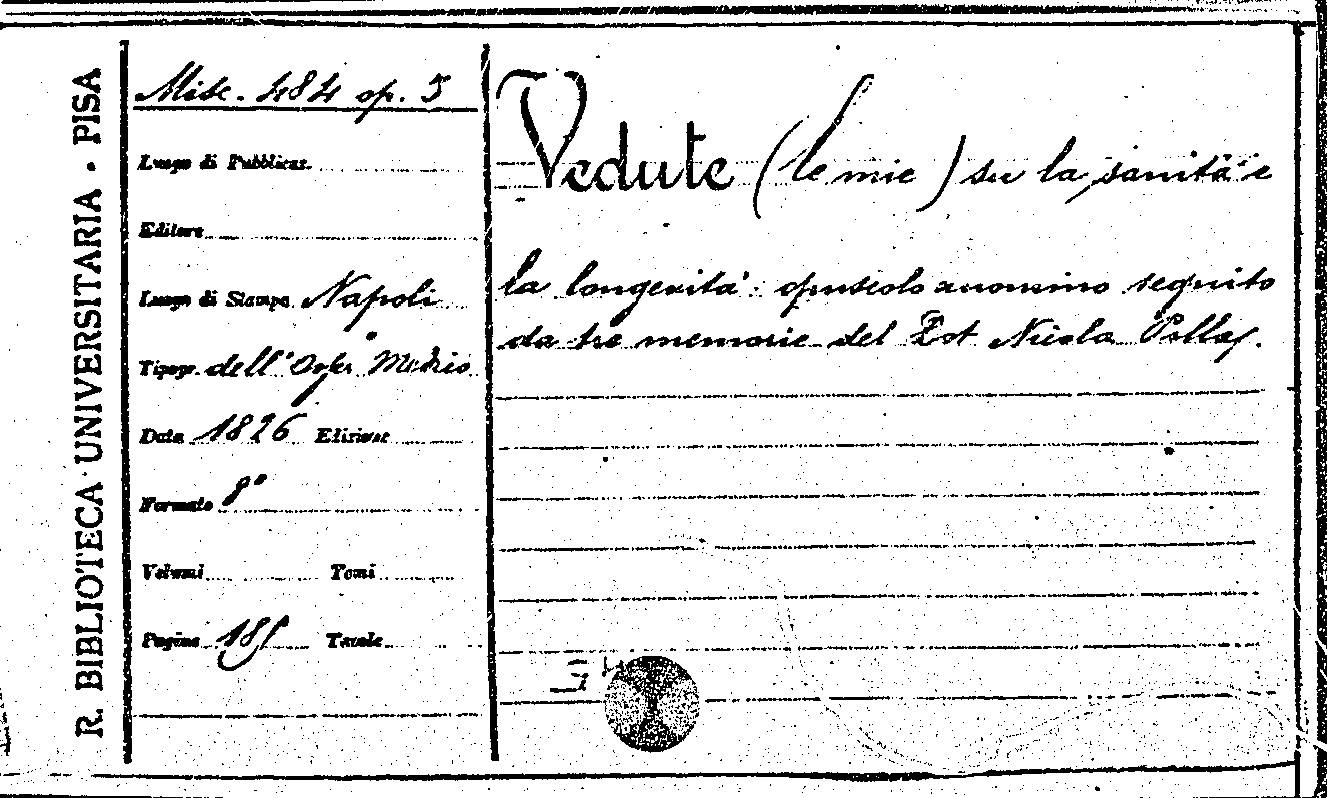 R. BIBLIOTECA UNIVERSITARIA - PISA
Misc. 484 op. 5
Luogo di Pubblicaz.
Editore
Luogo di Stampa Napoli
Tipogr. dell'
Data 1826 Edizione
Formato 8°
Volumi Tomi
Pagine Tavole
Vedute (le mie) su la sanità e
la longevità: opuscolo anonimo seguito
da tre memorie del Dot Nicola